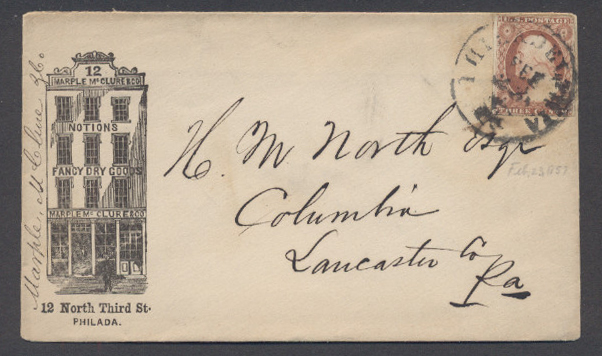 Marple, McClure & Co
12
MARPLE McCLURE & CO
NOTIONS
FANCY DRY GOODS
MARPLE McCLURE & CO
12 North Third St.
PHILADA.
U.S. POSTAGE
THREE CENTS
PHILADELPHIA
FEB
PA
H. M North Esqr
Columbia
Lancaster Co
Pa
Feb, 23 1857